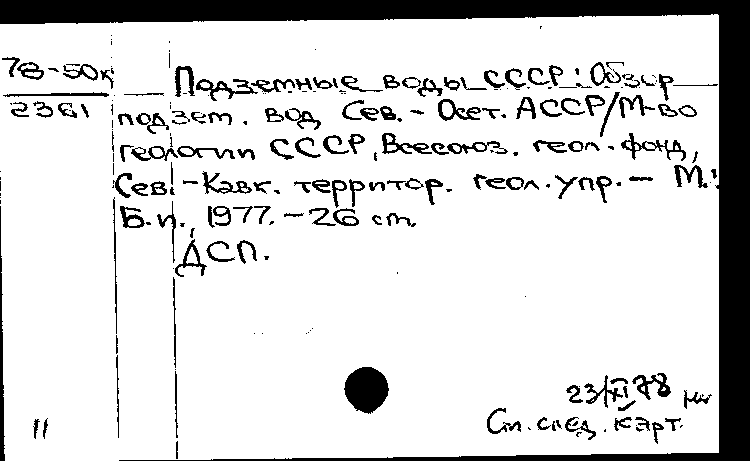 78-50к
2361
Подземные воды СССР: Обзор
подзем. вод Сев.-Осет. АССР/М-во
геологии СССР, Всесоюз. геол. фонд,
Сев.-Кавк. территор. геол. упр. — М.:
Б.и., 1977. — 26 см.
ДСП.
23/XI 78
См. след. карт.
11